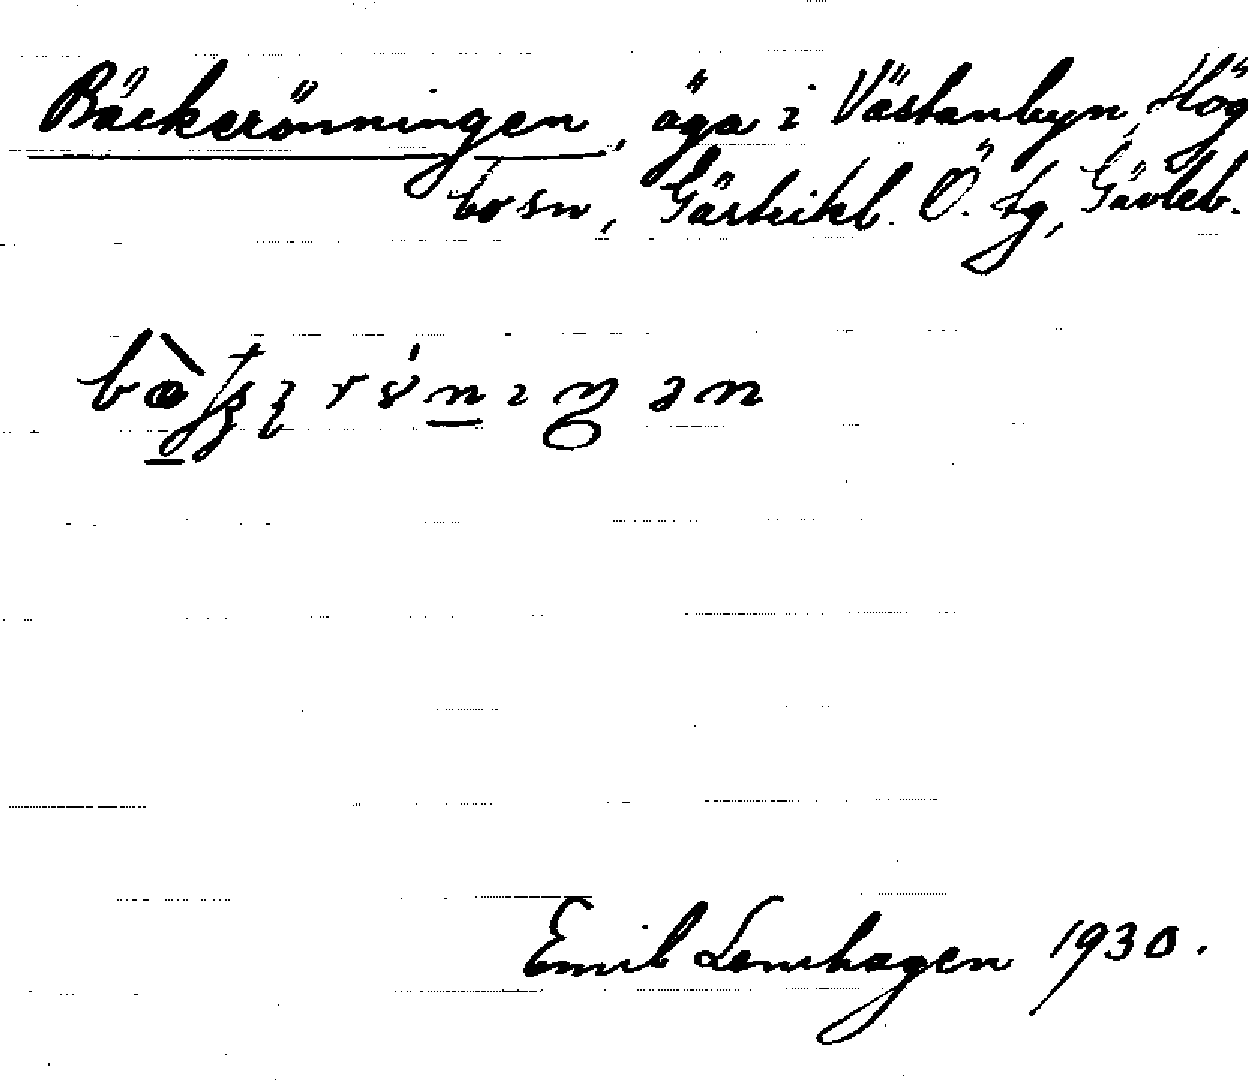 Bäckerönningen, äga i Västanbyn, Hög
bo sn, Gästrikl. Ö. tg, Gävleb.
Emil Lenhagen 1930.